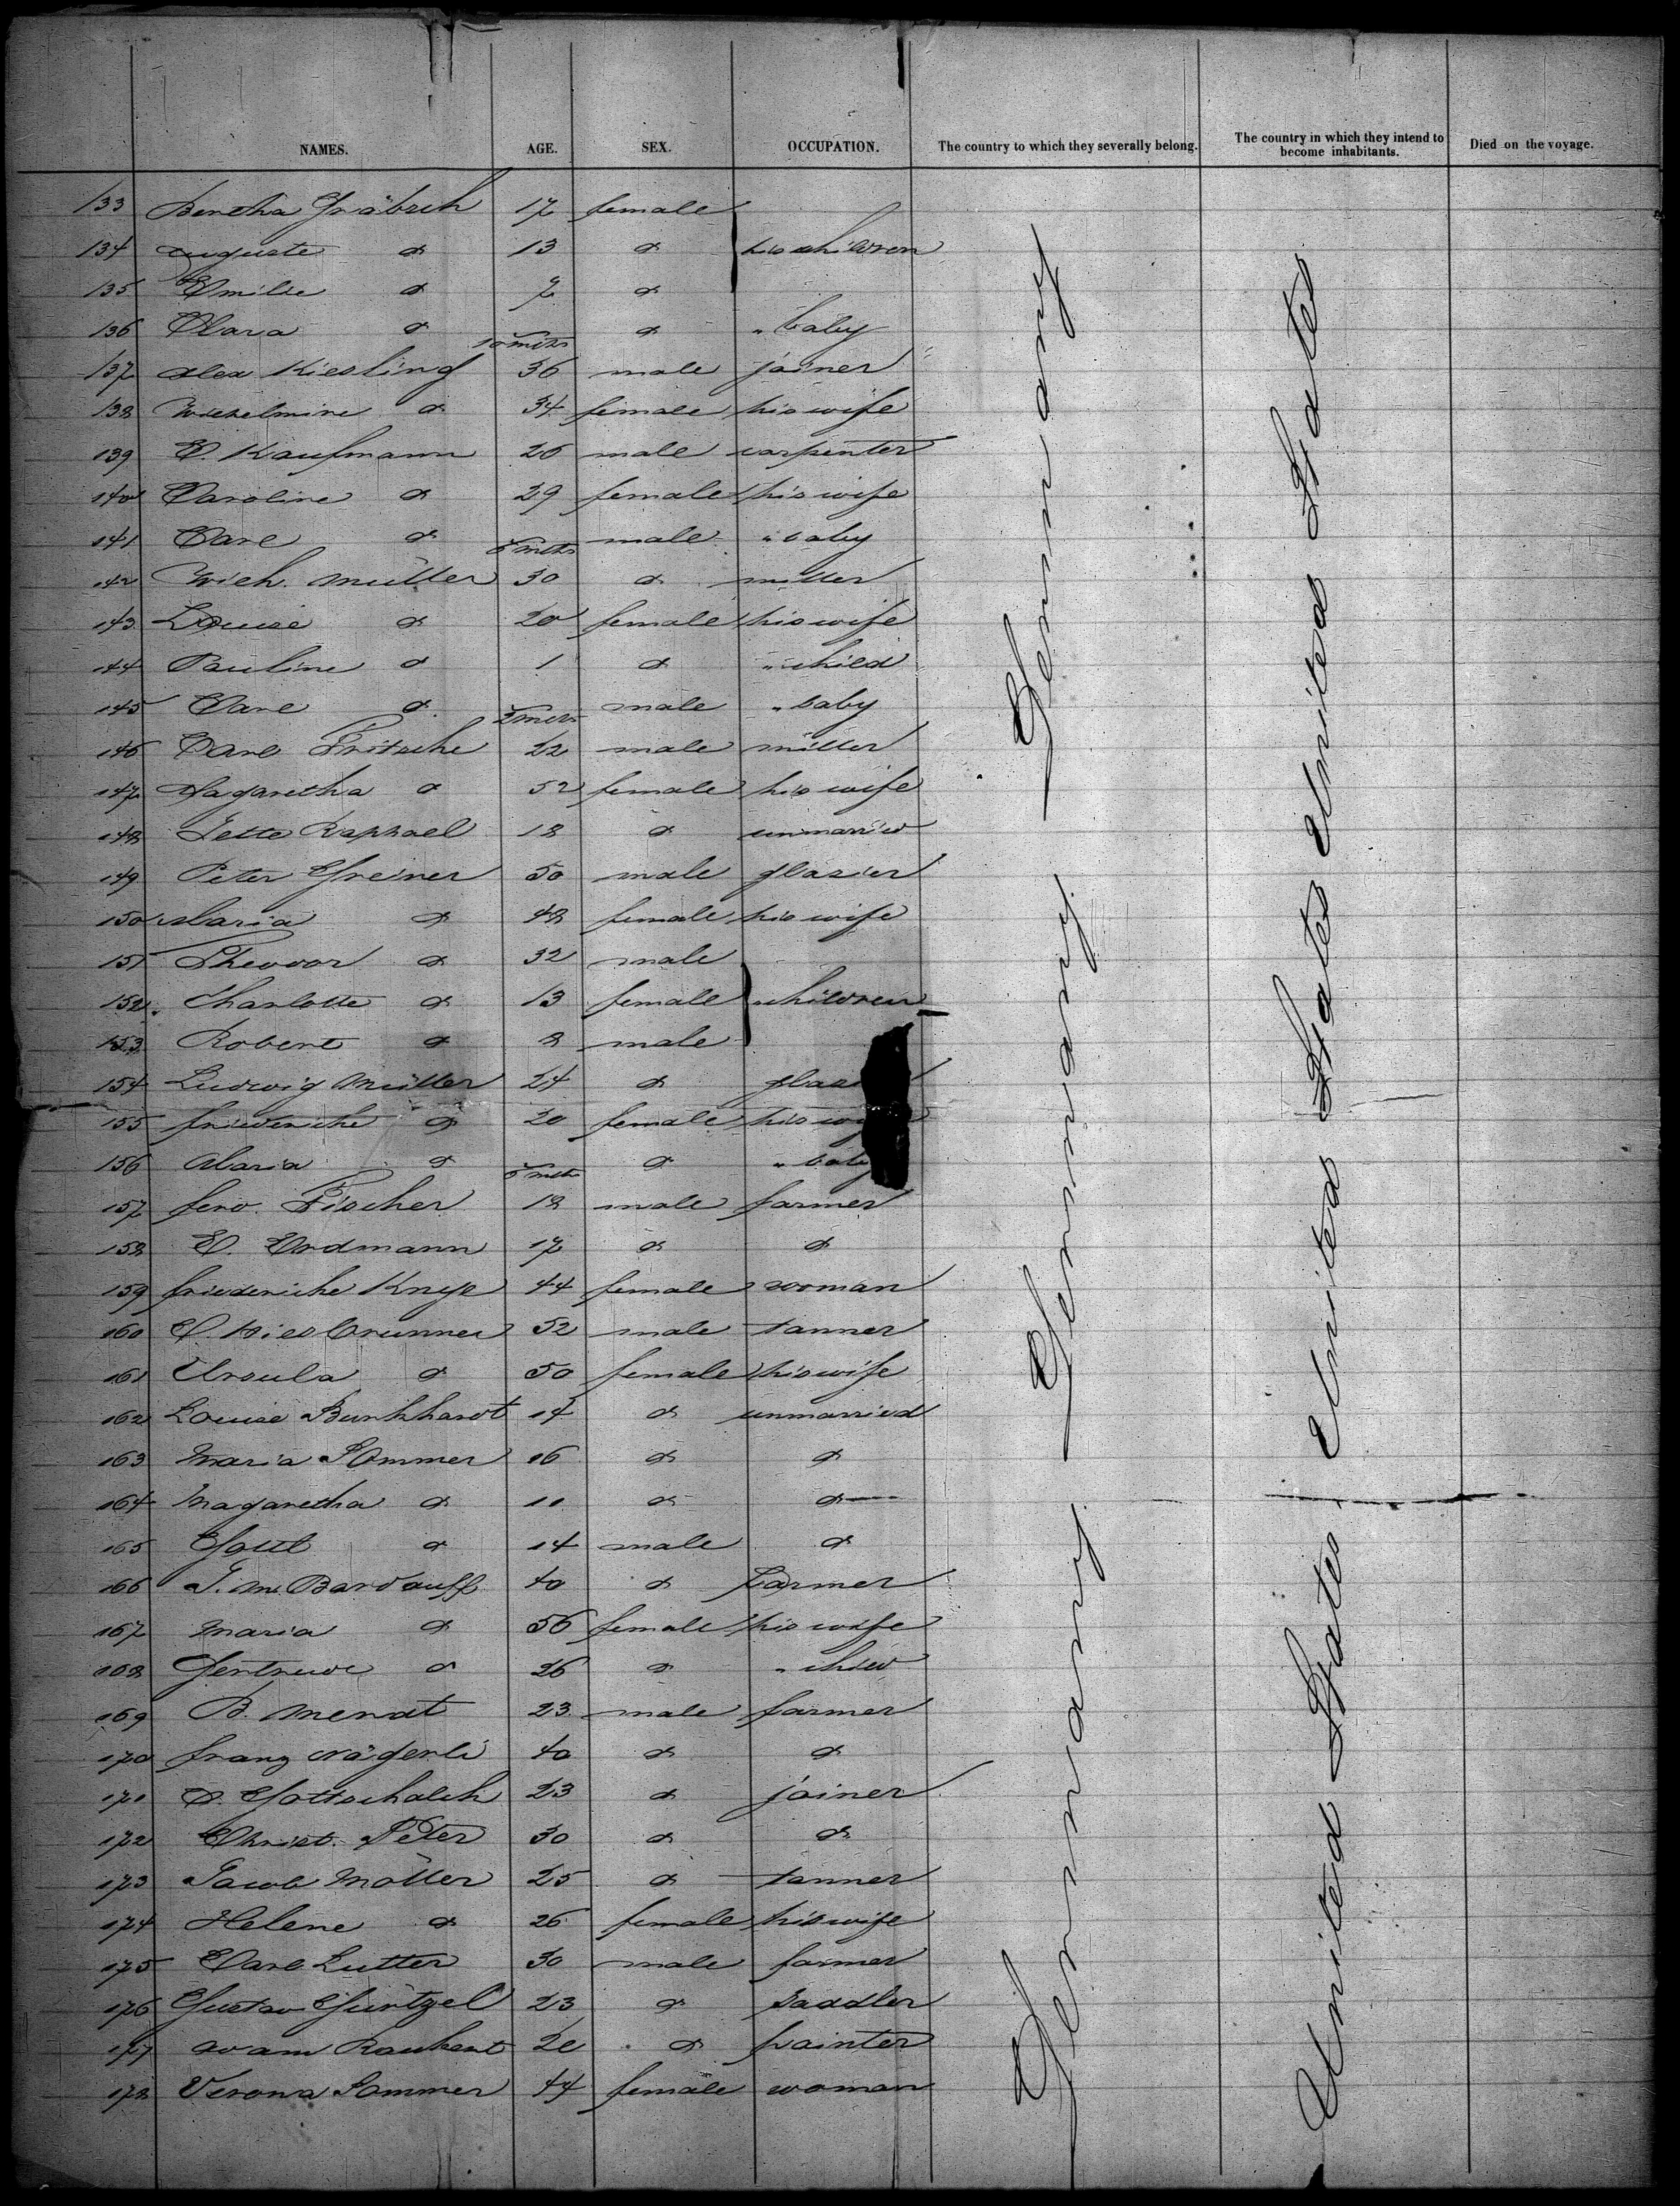 NAMES. AGE. SEX. OCCUPATION. The country to which they severally belong. The country in which they intend to become inhabitants. Died on the voyage.
133 Bertha Gräbsch 17 female
134 Auguste do 13 do his children
135 Emilie do 7 do
136 Clara do 10 mths do " baby
137 Alex Kiesling 36 male joiner
138 Wilhelmine do 34 female his wife
139 C. Kaufmann 26 male carpenter
140 Caroline do 29 female his wife
141 Carl do 6 mths male " baby
142 Wilh. Müller 30 do miller
143 Louise do 20 female his wife
144 Pauline do 1 do " child
145 Carl do mths male " baby
146 Carl Fritsche 22 male miller
147 Magaretha do 52 female his wife
148 Jette Raphael 18 do unmarried
149 Peter Greiner 50 male glazier
150 Maria do 48 female his wife
151 Theodor do 32 male
152 Charlotte do 13 female " children
153 Robert do 8 male
154 Ludwig Müller 24 do
155 Friederike do 20 female his
156 Maria do 6 mths do " baby
157 Ferd. Fischer 18 male farmer
158 C. Erdmann 17 do do
159 Friederike 44 female woman
160 52 male tanner
161 Ursula do 50 female his wife
162 Louise Burkhardt 14 do unmarried
163 Maria Sommer 16 do do
164 Magaretha do 11 do do
165 do 14 male do
166 J. M. Bardauff 40 do Farmer
167 Maria do 56 female his wife
168 Gertrude do 26 do " child
169 B. Mendt 23 male farmer
170 Franz Nägerli 40 do do
171 Gottschalch 23 do joiner
172 Christ. Peter 30 do do
173 Jacob Möller 25 do tanner
174 Helene do 26 female his wife
175 Carl Lutter 30 male farmer
176 Gustav Güntzel 23 do Saddler
177 Adam do painter
178 Verona Sommer 44 female woman
Germany Germany Germany
United States United States United States